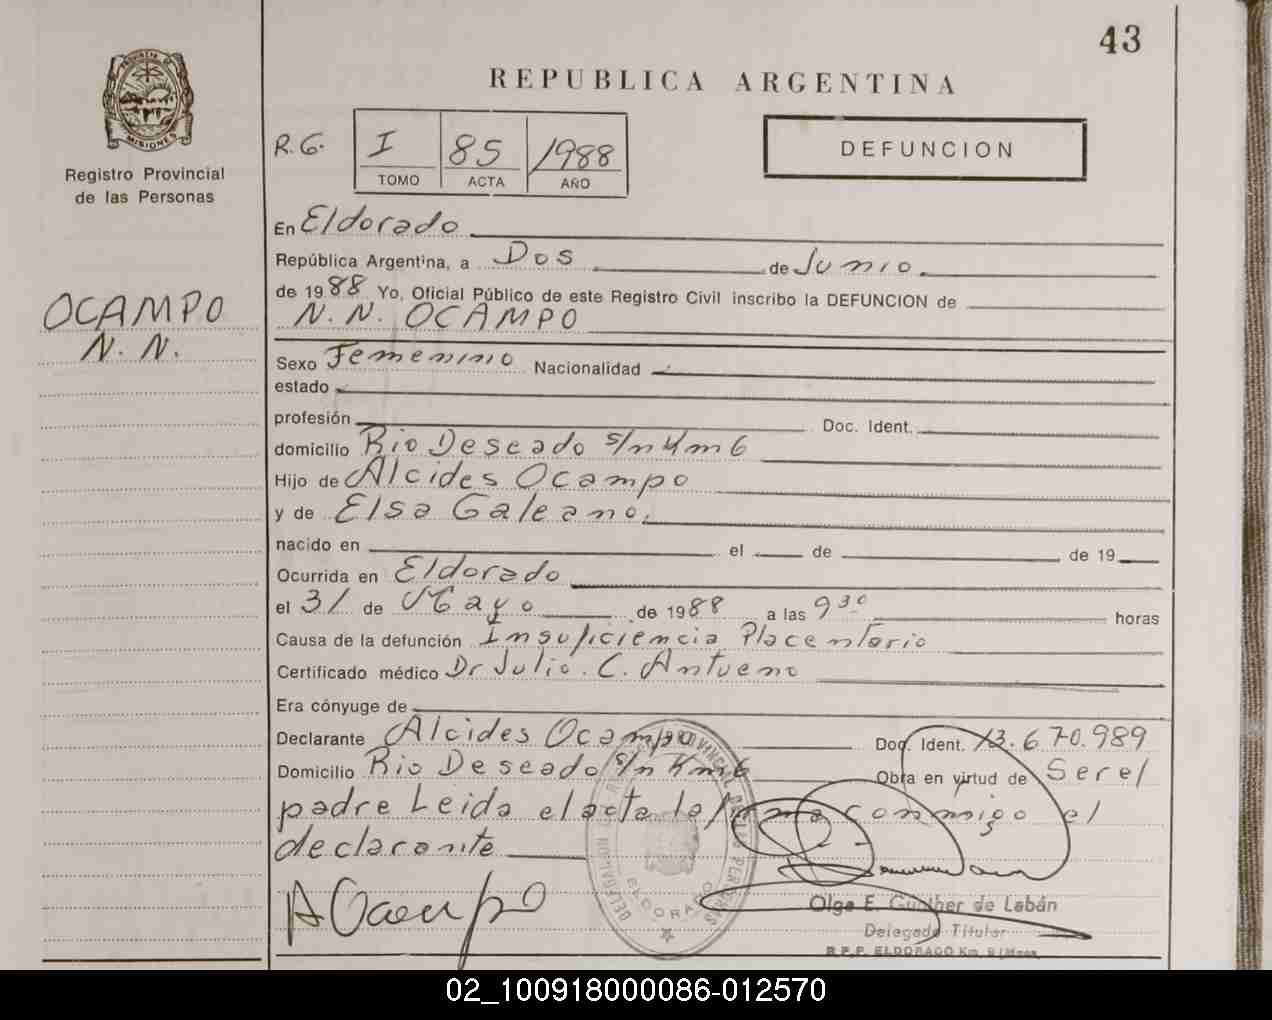 43
REPUBLICA ARGENTINA
PROVINCIA DE MISIONES
Registro Provincial
de las Personas
R.G. I 85 1988
TOMO ACTA AÑO
DEFUNCION
OCAMPO
N. N.
En Eldorado
República Argentina, a Dos de Junio
de 1988 Yo, Oficial Público de este Registro Civil inscribo la DEFUNCION de
N. N. OCAMPO
Sexo Femenino Nacionalidad
estado
profesión Doc. Ident.
domicilio Rio Deseado s/n Km 6
Hijo de Alcides Ocampo
y de Elsa Galeano.
nacido en el de de 19
Ocurrida en Eldorado
el 31 de Mayo de 1988 a las 9 30 horas
Causa de la defunción Insuficiencia Placentario
Certificado médico Dr Julio. C. Antueno
Era cónyuge de
Declarante Alcides Ocampo Doc. Ident. 13.670.989
Domicilio Rio Deseado s/n Km 6 Obra en virtud de Ser el
padre Leida el acta la firma conmigo el
declarante
A Ocampo
ELDORADO
Olga E. Gunther de Labán
Delegada Titular
R.P.P. ELDORADO Km. 9 (Mnes.
02_100918000086-012570